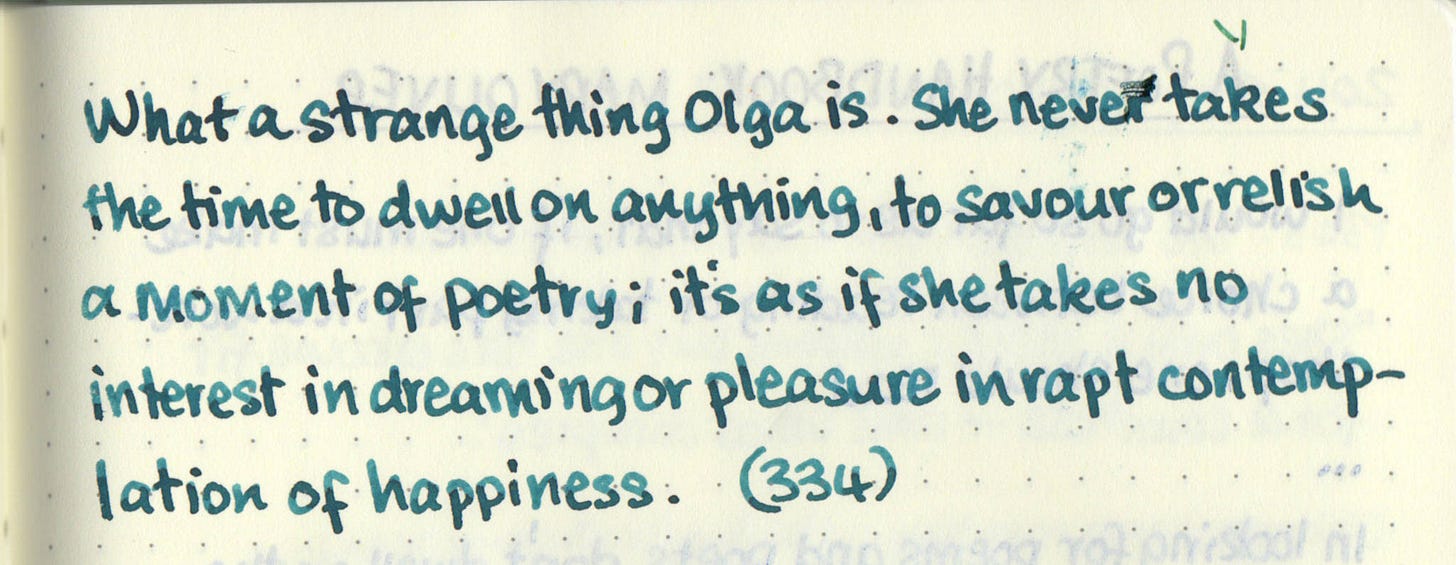 What a strange thing Olga is. She never takes
the time to dwell on anything, to savour or relish
a moment of poetry; it's as if she takes no
interest in dreaming or pleasure in rapt contemp-
lation of happiness. (334)